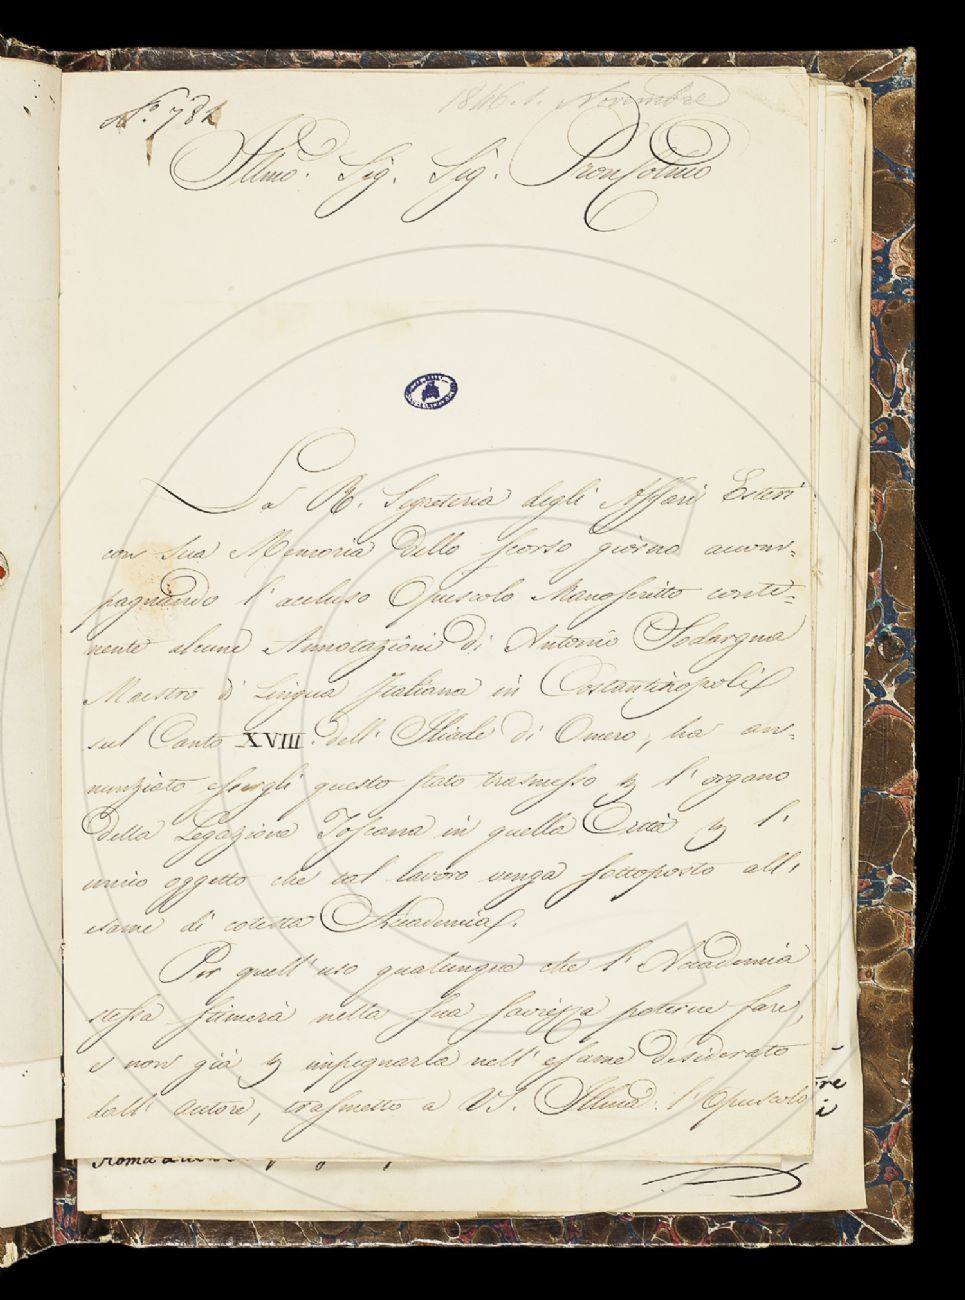 N.° 782
1846. 1. Novembre
Illmo. Sig. Sig. Pron Colmo
La R. Segreteria degli Affari Esteri
con sua Memoria dello scorso giorno accom=
pagnando l' accluso Opuscolo Manoscritto conte=
nente alcune Annotazioni di Antonio Sodargna
Maestro di Lingua Italiana in Costantinopoli
sul Canto XVIII. dell' Iliade di Omero, ha an=
nunziato essergli questo stato trasmesso p l' organo
della Legazione Toscana in quella Città p l'
unico oggetto che tal lavoro venga sottoposto all'
esame di cotesta Accademia.
Per quell' uso qualunque che l' Accademia
stessa stimerà nella sua saviezza poterne fare,
e non già p impegnarla nell' esame desiderato
dall' autore, trasmetto a VS. Illma. l' Opuscolo
Roma